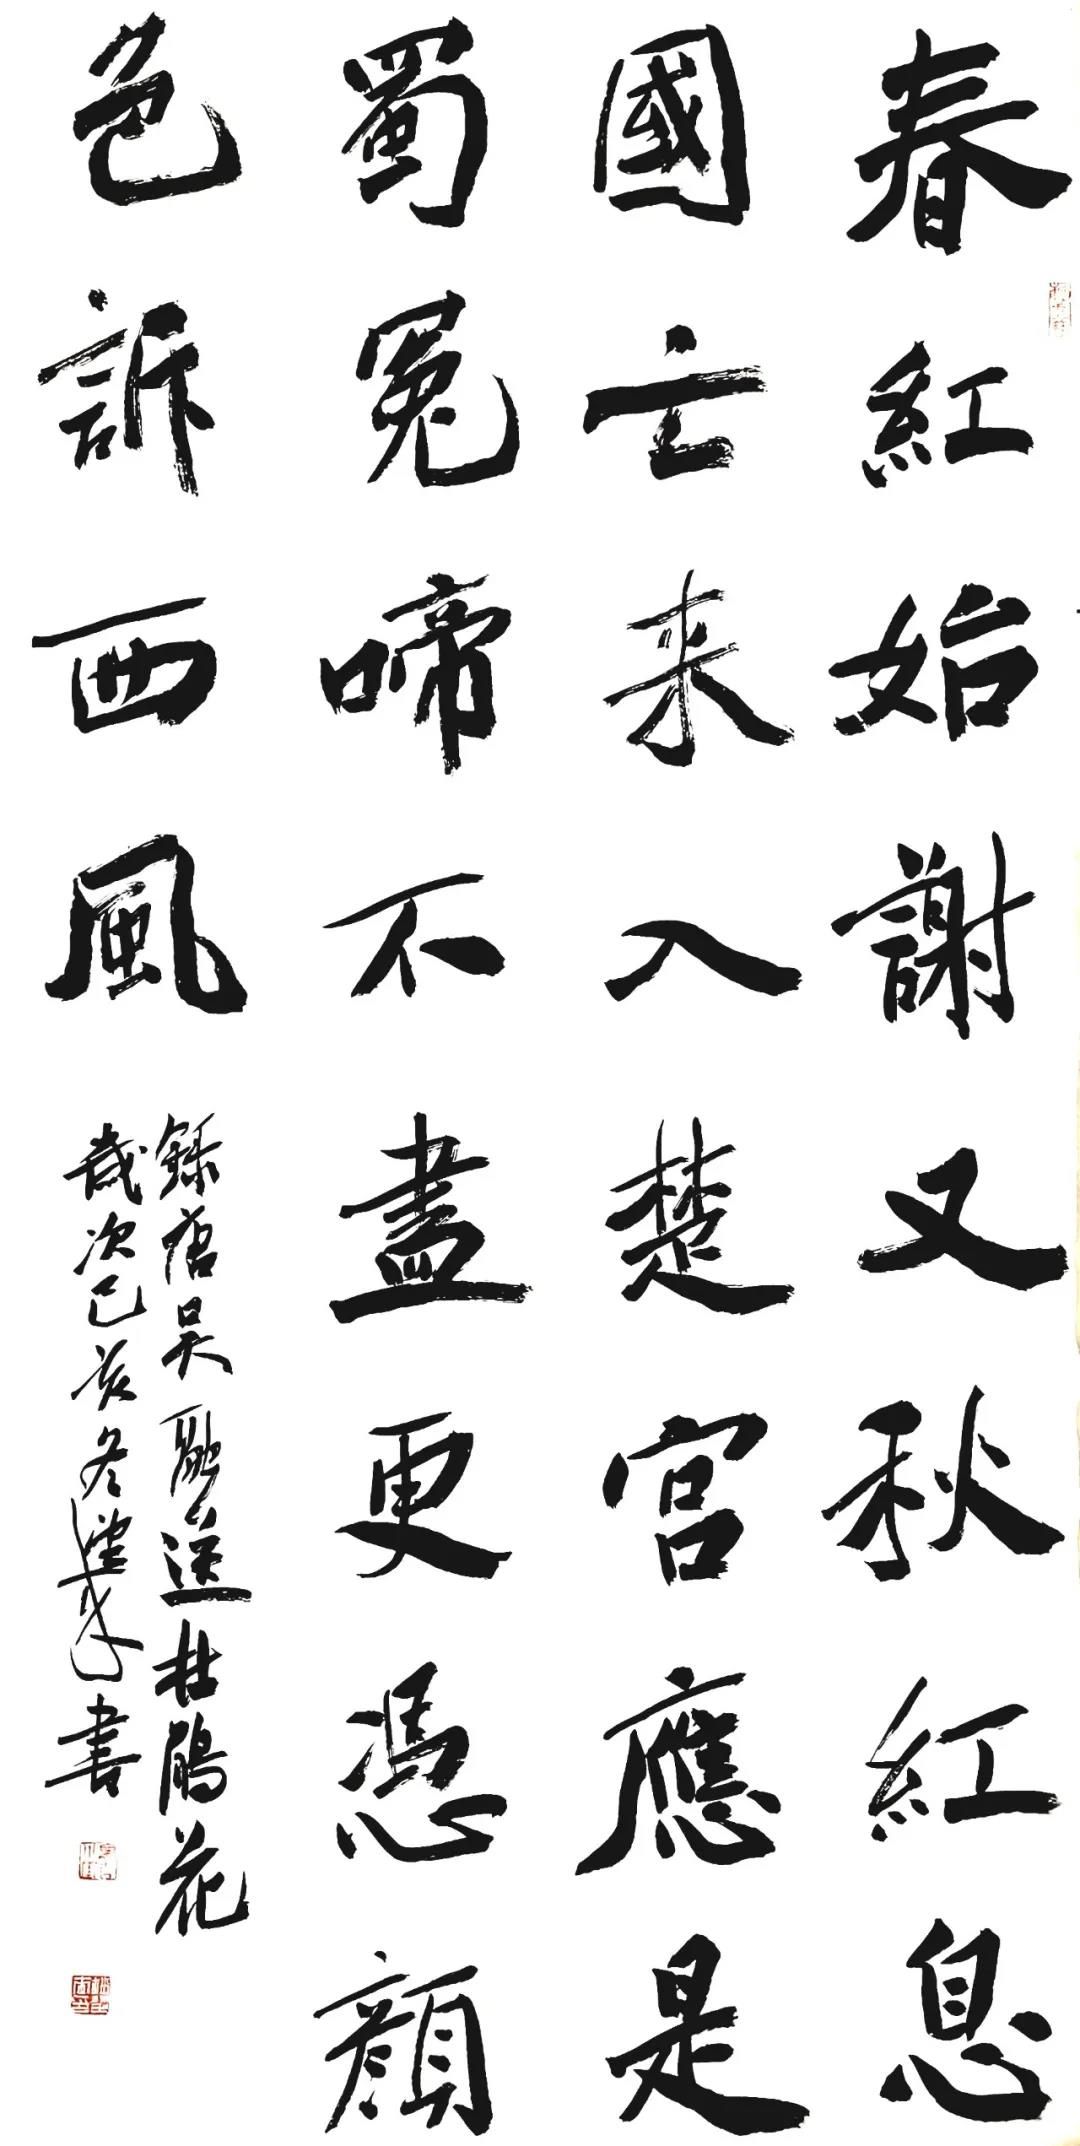 春紅始謝又秋紅息
國亡来入楚宫應是
蜀冤啼不盡更憑顔
色訴西風
錄唐吴融送杜鵑花
歲次己亥冬
書